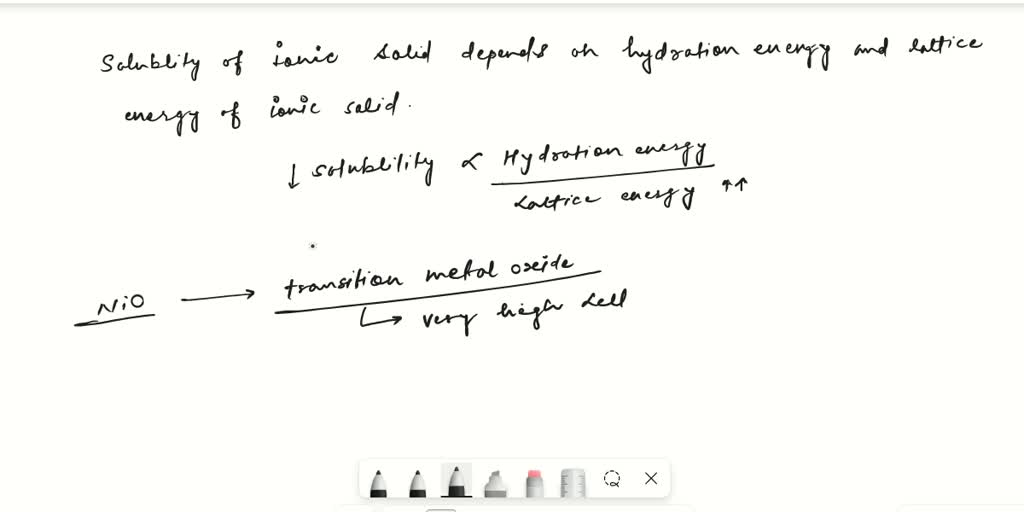 Solublity of ionic solid depends on hydration energy and lattice
energy of ionic solid.
↓ solublility ∝ Hydration energy
Lattice energy ↑↑
NiO → transition metal oxide
↳ very high